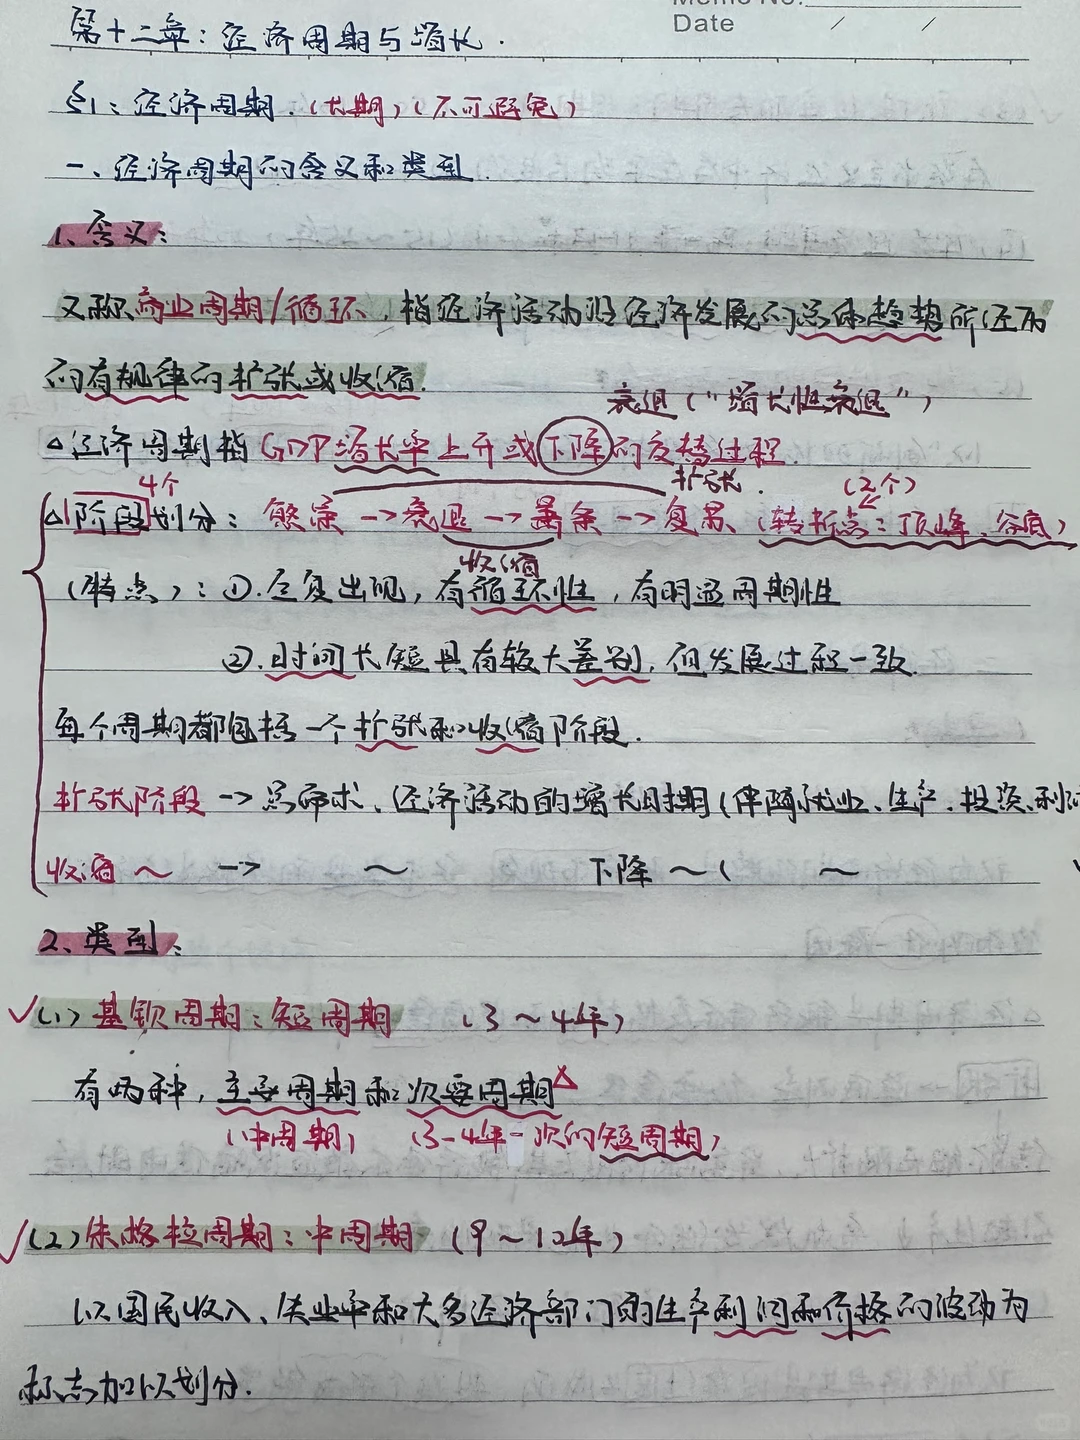 Memo No.
Date / /
第十二章：经济周期与增长．
§1：经济周期．（长期）（不可避免）
一、经济周期的含义和类型．
1、含义：
又称商业周期/循环，指经济活动沿经济发展的总体趋势所经历
的有规律的扩张或收缩．
衰退（"增长性衰退"）
△经济周期指GDP增长率上升或下降的交替过程．
4个 扩张． （2个）
△阶段划分：繁荣→衰退→萧条→复苏（转折点：顶峰、谷底）
收缩
（特点）：①．反复出现，有循环性，有明显周期性
②．时间长短具有较大差别，但发展过程一致．
每个周期都包括一个扩张和收缩阶段．
扩张阶段→总需求、经济活动的增长时期（伴随就业、生产、投资、利润
收缩～ → ～ 下降～（ ～
2、类型：
✓（1）基钦周期：短周期 （3～4年）
有两种，主要周期和次要周期△
（中周期） （3-4年一次的短周期）
✓（2）朱格拉周期：中周期 （9～10年）
以国民收入、失业率和大多经济部门的生产利润和价格的波动为
标志加以划分．